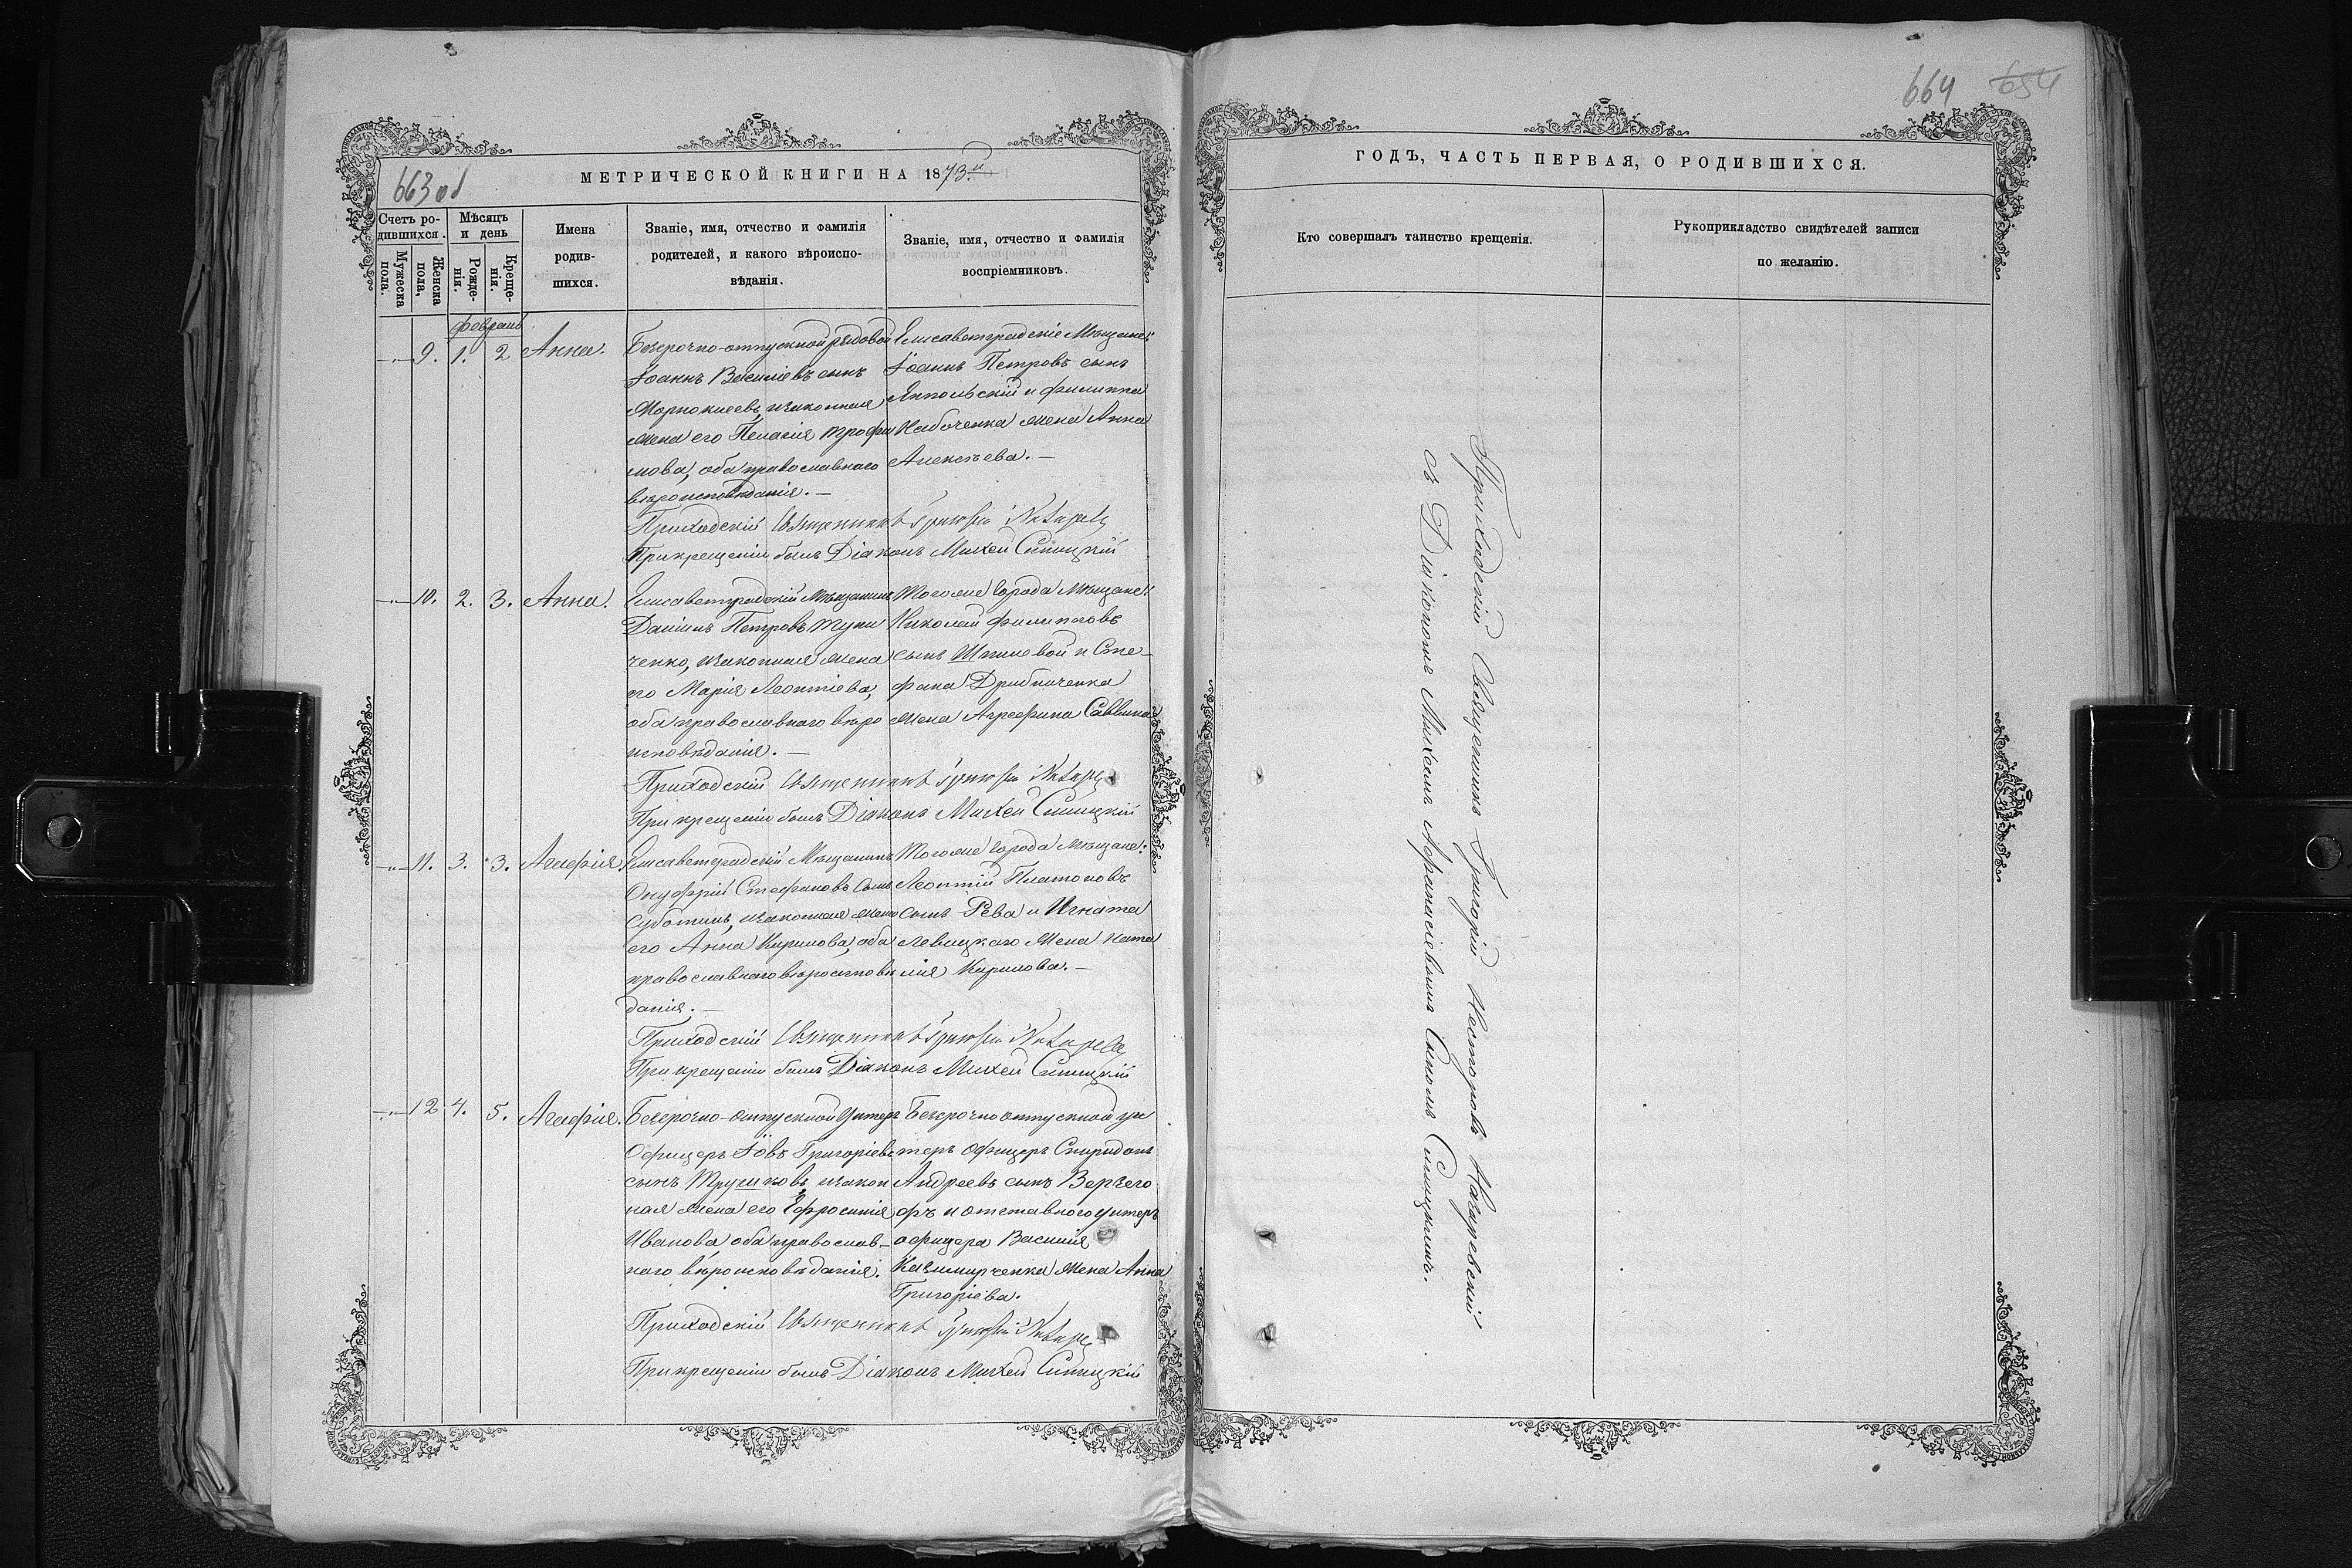 МЕТРИЧЕСКОЙ КНИГИ НА 1873й
663 об
Счетъ родившихся.
Мужеска пола.
Женска пола,
Мѣсяцъ и день
Рожденія.
Крещенія.
Имена родившихся.
Званіе, имя, отчество и фамилія
родителей, и какого вѣроиспо-
вѣданія.
Званіе, имя, отчество и фамилія
воспріемниковъ.
февраль
9. 1. 2 Анна.
Безсрочно-отпускной рядовой
Іоаннъ Василіевъ сынъ
изаконная
жена его Пелагія Трофи
мова, оба православнаго
вѣроисповѣданія. —
Елисаветградскіе Мѣщане:
Іоаннъ Петровъ сынъ
и Филиппа
жена Анна
Алексѣева. —
Приходскій Священникъ Григорій
При крещеніи былъ Діаконъ Михей Синицкій
10. 2. 3. Анна.
Елисаветградскій Мѣщанинъ
Даніилъ Петровъ
ченко, изаконная жена
его Марія Леонтіева,
оба православнаго вѣро
исповѣданія. —
Тогоже города Мѣщане:
Николай Филипповъ
сынъ Шпилевой и Сте-
фана Дрибниченка
жена Агрефина Саввина
Приходскій Священникъ Григорій
При крещеніи былъ Діаконъ Михей Синицкій
11. 3. 3. Агафія.
Елисаветградскій Мѣщанинъ
Онуфрій Стефановъ сынъ
Суботинъ, изаконная жена
его Анна Кирилова, оба
православнаго вѣроисповѣ
данія. —
Тогоже города Мѣщане:
Леонтій Платоновъ
сынъ Рева и Игната
Левицкаго жена Ната
лія Кирилова. —
Приходскій Священникъ Григорій
При крещеніи былъ Діаконъ Михей Синицкій
12 4. 5. Агафія.
Безсрочно-отпускной Унтеръ
Офицеръ Іовъ Григоріевъ
сынъ Трушковъ, изакон
ная жена его Ефросинія
Иванова оба православ-
наго вѣроисповѣданія.
Безсрочно отпускной ун
теръ офицеръ Спиридонъ
Андреевъ сынъ
и отставного унтеръ
офицера Василія
Казимирченка жена Анна
Григоріева.
Приходскій Священникъ Григорій
При крещеніи былъ Діаконъ Михей Синицкій
664 654
ГОДЪ, ЧАСТЬ ПЕРВАЯ, О РОДИВШИХСЯ.
Кто совершалъ таинство крещенія.
Рукоприкладство свидѣтелей записи
по желанію.
Приходскій Священникъ Григорій Несторовъ
съ Діакономъ Михеемъ Афанасіевымъ Сыномъ Синицкимъ.